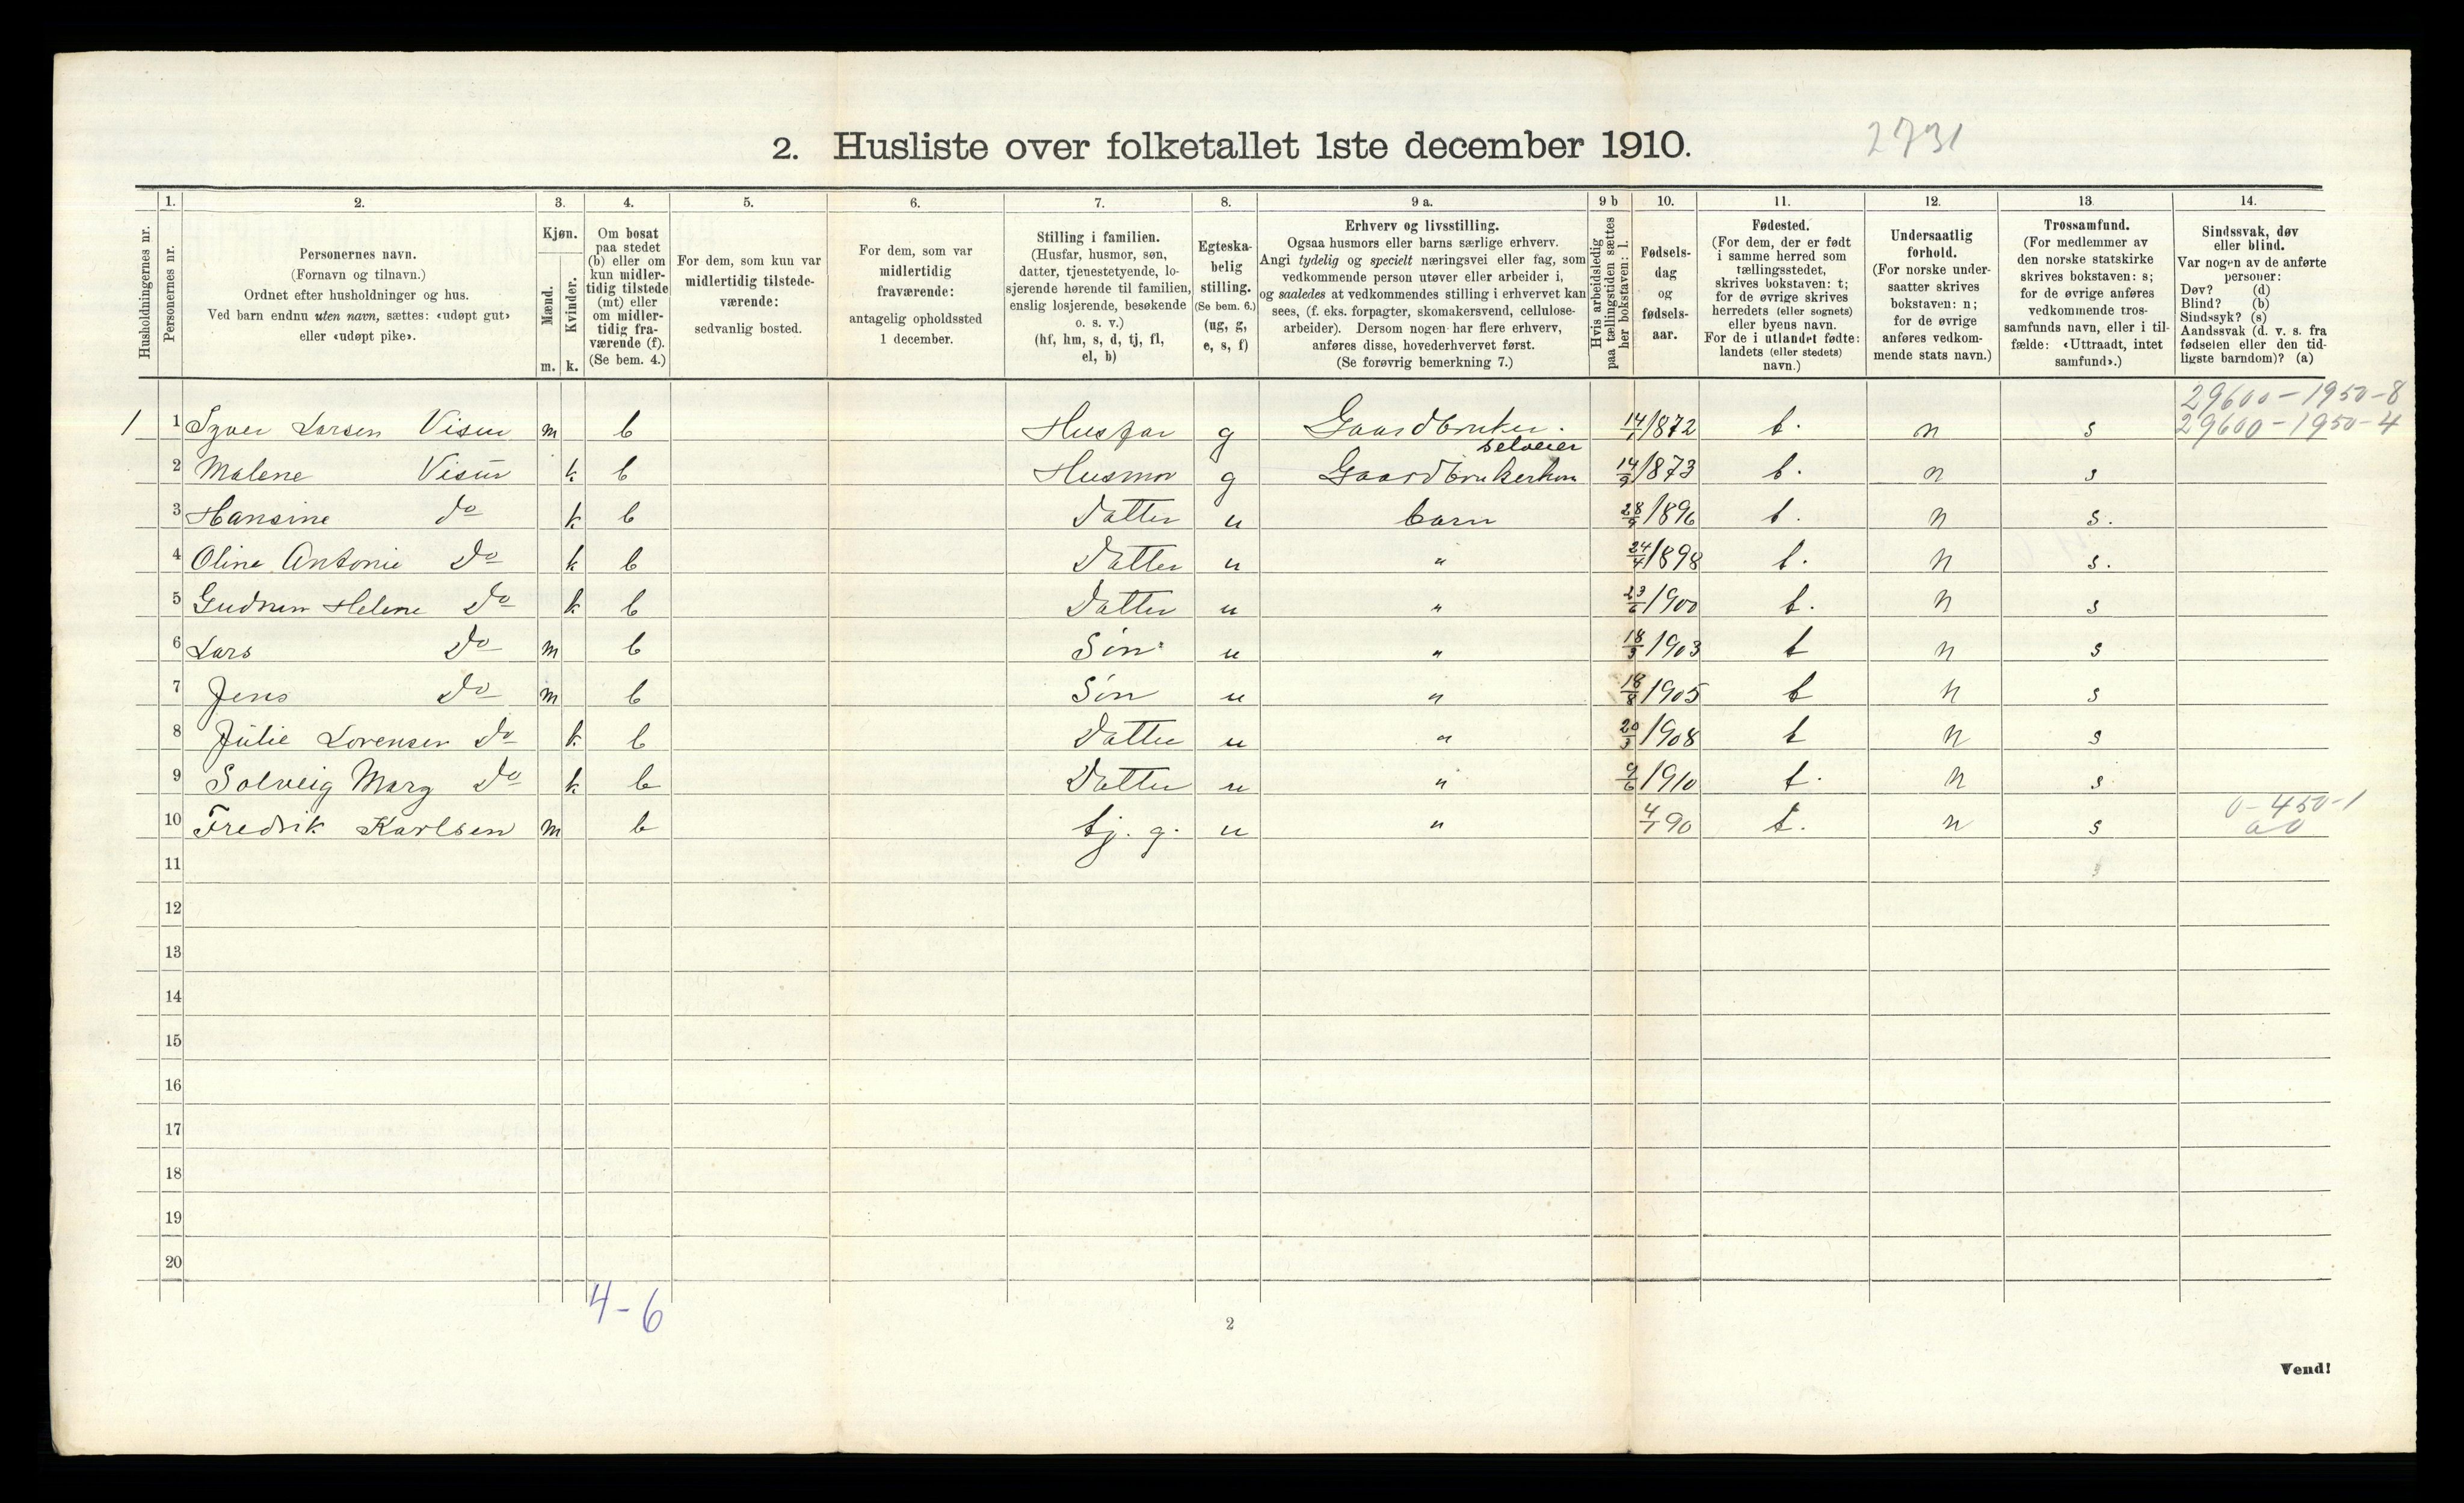 2. Husliste over folketallet 1ste december 1910.
2731
Husholdningernes nr.
1. Personernes nr.
2. Personernes navn.
(Fornavn og tilnavn.)
Ordnet efter husholdninger og hus.
Ved barn endnu uten navn, sættes: «udøpt gut»
eller «udøpt pike».
3. Kjøn.
Mænd. Kvinder.
m. k.
4. Om bosat
paa stedet
(b) eller om
kun midler-
tidig tilstede
(mt) eller
om midler-
tidig fra-
værende (f).
(Se bem. 4.)
5. For dem, som kun var
midlertidig tilstede-
værende:
sedvanlig bosted.
6. For dem, som var
midlertidig
fraværende:
antagelig opholdssted
1 december.
7. Stilling i familien.
(Husfar, husmor, søn,
datter, tjenestetyende, lo-
sjerende hørende til familien,
enslig losjerende, besøkende
o. s. v.)
(hf, hm, s, d, tj, fl,
el, b)
8. Egteska-
belig
stilling.
(Se bem. 6.)
(ug, g,
e, s, f)
9 a. Erhverv og livsstilling.
Ogsaa husmors eller barns særlige erhverv.
Angi tydelig og specielt næringsvei eller fag, som
vedkommende person utøver eller arbeider i,
og saaledes at vedkommendes stilling i erhvervet kan
sees, (f. eks. forpagter, skomakersvend, cellulose-
arbeider). Dersom nogen har flere erhverv,
anføres disse, hovederhvervet først.
(Se forøvrig bemerkning 7.)
9 b Hvis arbeidsledig
paa tællingstiden sættes
her bokstaven: l.
10. Fødsels-
dag
og
fødsels-
aar.
11. Fødested.
(For dem, der er født
i samme herred som
tællingsstedet,
skrives bokstaven: t;
for de øvrige skrives
herredets (eller sognets)
eller byens navn.
For de i utlandet fødte:
landets (eller stedets)
navn.)
12. Undersaatlig
forhold.
(For norske under-
saatter skrives
bokstaven: n;
for de øvrige
anføres vedkom-
mende stats navn.)
13 Trossamfund.
(For medlemmer av
den norske statskirke
skrives bokstaven: s;
for de øvrige anføres
vedkommende tros-
samfunds navn, eller i til-
fælde: «Uttraadt, intet
samfund».)
14. Sindssvak, døv
eller blind.
Var nogen av de anførte
personer:
Døv? (d)
Blind? (b)
Sindssyk? (s)
Aandssvak (d. v. s. fra
fødselen eller den tid-
ligste barndom)? (a)
29600-1950-8
1 1 Larsen Visur m b Husfar g Gaardbruker. 14/1 1872 t. n s 29600-1950-4
selveier
2 Malene Visur k b Husmor g Gaardbrukerkone 14/9 1873 t. n s
3 Hansine do k b Datter u barn 28/9 1896 t. n s.
4 Oline Antonie Do k b Datter u " 24/4 1898 t. n s.
5 Gudrun Helene Do k b Datter u " 23/6 1900 t. n s
6 Lars Do m b Søn u " 18/3 1903 t n s
7 Jens Do m b Søn u " 18/8 1905 t n s
8 Julie Lorensen do k b Datter u " 20/3 1908 t n s
9 Solveig Marg Do k b Datter u " 9/6 1910 t. n s
10 Fredrik Karlsen m b tj. g. u " 4/1 90 t. n s 0-450-1
0 0
11
12
13
14
15
16
17
18
19
20
4-6
2
Vend!